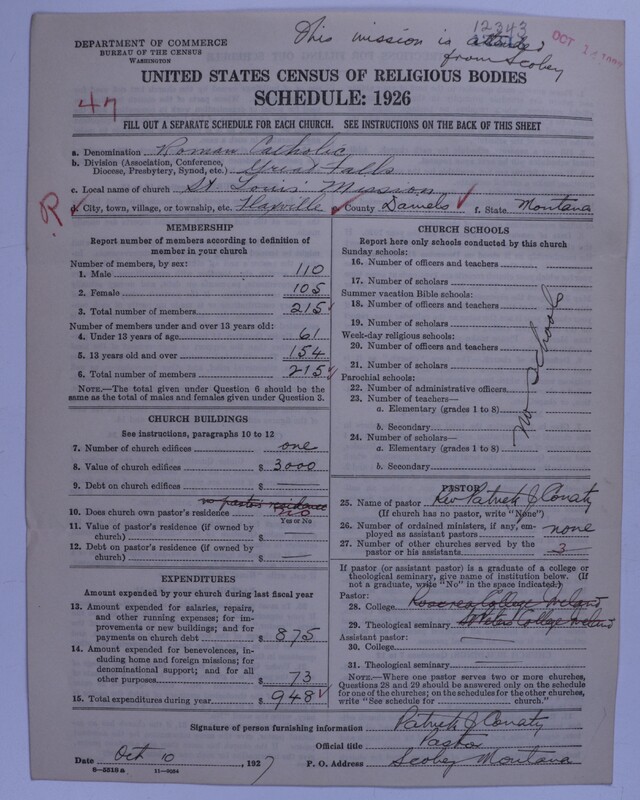 12343
This mission is attended
from Scobey
DEPARTMENT OF COMMERCE
BUREAU OF THE CENSUS
WASHINGTON
OCT
UNITED STATES CENSUS OF RELIGIOUS BODIES
SCHEDULE: 1926
47
FILL OUT A SEPARATE SCHEDULE FOR EACH CHURCH. SEE INSTRUCTIONS ON THE BACK OF THIS SHEET
a. Denomination Roman Catholic
b. Division (Association, Conference, Diocese, Presbytery, Synod, etc.) Great Falls
c. Local name of church St. Louis' Mission
R
d. City, town, village, or township, etc. Flaxville County Daniels f. State Montana
MEMBERSHIP
Report number of members according to definition of
member in your church
Number of members, by sex:
1. Male 110
2. Female 105
3. Total number of members 215
Number of members under and over 13 years old:
4. Under 13 years of age 61
5. 13 years old and over 154
6. Total number of members 215
NOTE.—The total given under Question 6 should be the
same as the total of males and females given under Question 3.
CHURCH BUILDINGS
See instructions, paragraphs 10 to 12
7. Number of church edifices one
8. Value of church edifices $ 3000
9. Debt on church edifices $ —
no pastor's residence
10. Does church own pastor's residence no
Yes or No
11. Value of pastor's residence (if owned by
church) $ —
12. Debt on pastor's residence (if owned by
church) $ —
EXPENDITURES
Amount expended by your church during last fiscal year
13. Amount expended for salaries, repairs,
and other running expenses; for im-
provements or new buildings; and for
payments on church debt $ 875
14. Amount expended for benevolences, in-
cluding home and foreign missions; for
denominational support; and for all
other purposes $ 73
15. Total expenditures during year $ 948
CHURCH SCHOOLS
Report here only schools conducted by this church
Sunday schools:
16. Number of officers and teachers
17. Number of scholars
Summer vacation Bible schools:
18. Number of officers and teachers
19. Number of scholars
Week-day religious schools:
20. Number of officers and teachers
21. Number of scholars
Parochial schools:
22. Number of administrative officers
23. Number of teachers—
a. Elementary (grades 1 to 8)
b. Secondary
24. Number of scholars—
a. Elementary (grades 1 to 8)
b. Secondary
no schools
PASTOR
25. Name of pastor Rev Patrick J Conaty
(If church has no pastor, write "None")
26. Number of ordained ministers, if any, em-
ployed as assistant pastors none
27. Number of other churches served by the
pastor or his assistants 3
If pastor (or assistant pastor) is a graduate of a college or
theological seminary, give name of institution below. (If
not a graduate, write "No" in the space indicated):
Pastor:
28. College Roscrea College Ireland
29. Theological seminary St Peters College Ireland
Assistant pastor:
30. College
31. Theological seminary
NOTE.—Where one pastor serves two or more churches,
Questions 28 and 29 should be answered only on the schedule
for one of the churches; on the schedules for the other churches,
write "See schedule for church."
Signature of person furnishing information Patrick J Conaty
Official title Pastor
Date Oct 10, 1927 P. O. Address Scobey Montana
8-5519a 11-9084